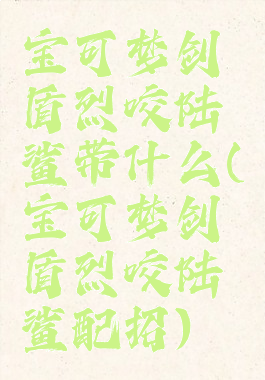 宝可梦剑
盾烈咬陆
鲨带什么(
宝可梦剑
盾烈咬陆
鲨配招)